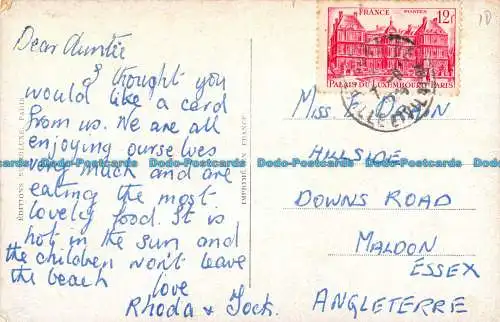 Dear Auntie
I thought you
would like a card
from us. We are all
enjoying ourselves
very much and are
eating the most
lovely food. It is
hot in the sun and
the children won't leave
the beach
love
Rhoda & Jock.
FRANCE
POSTES
12F
PALAIS DU LUXEMBOURG PARIS
MISS. Down
HILLSIDE
DOWNS ROAD
MALDON
ESSEX
ANGLETERRE
IMPRIMÉ EN FRANCE
Dodo-Postcards Dodo-Postcards Dodo-Postcards Dodo-Postcards Dodo-Postcards